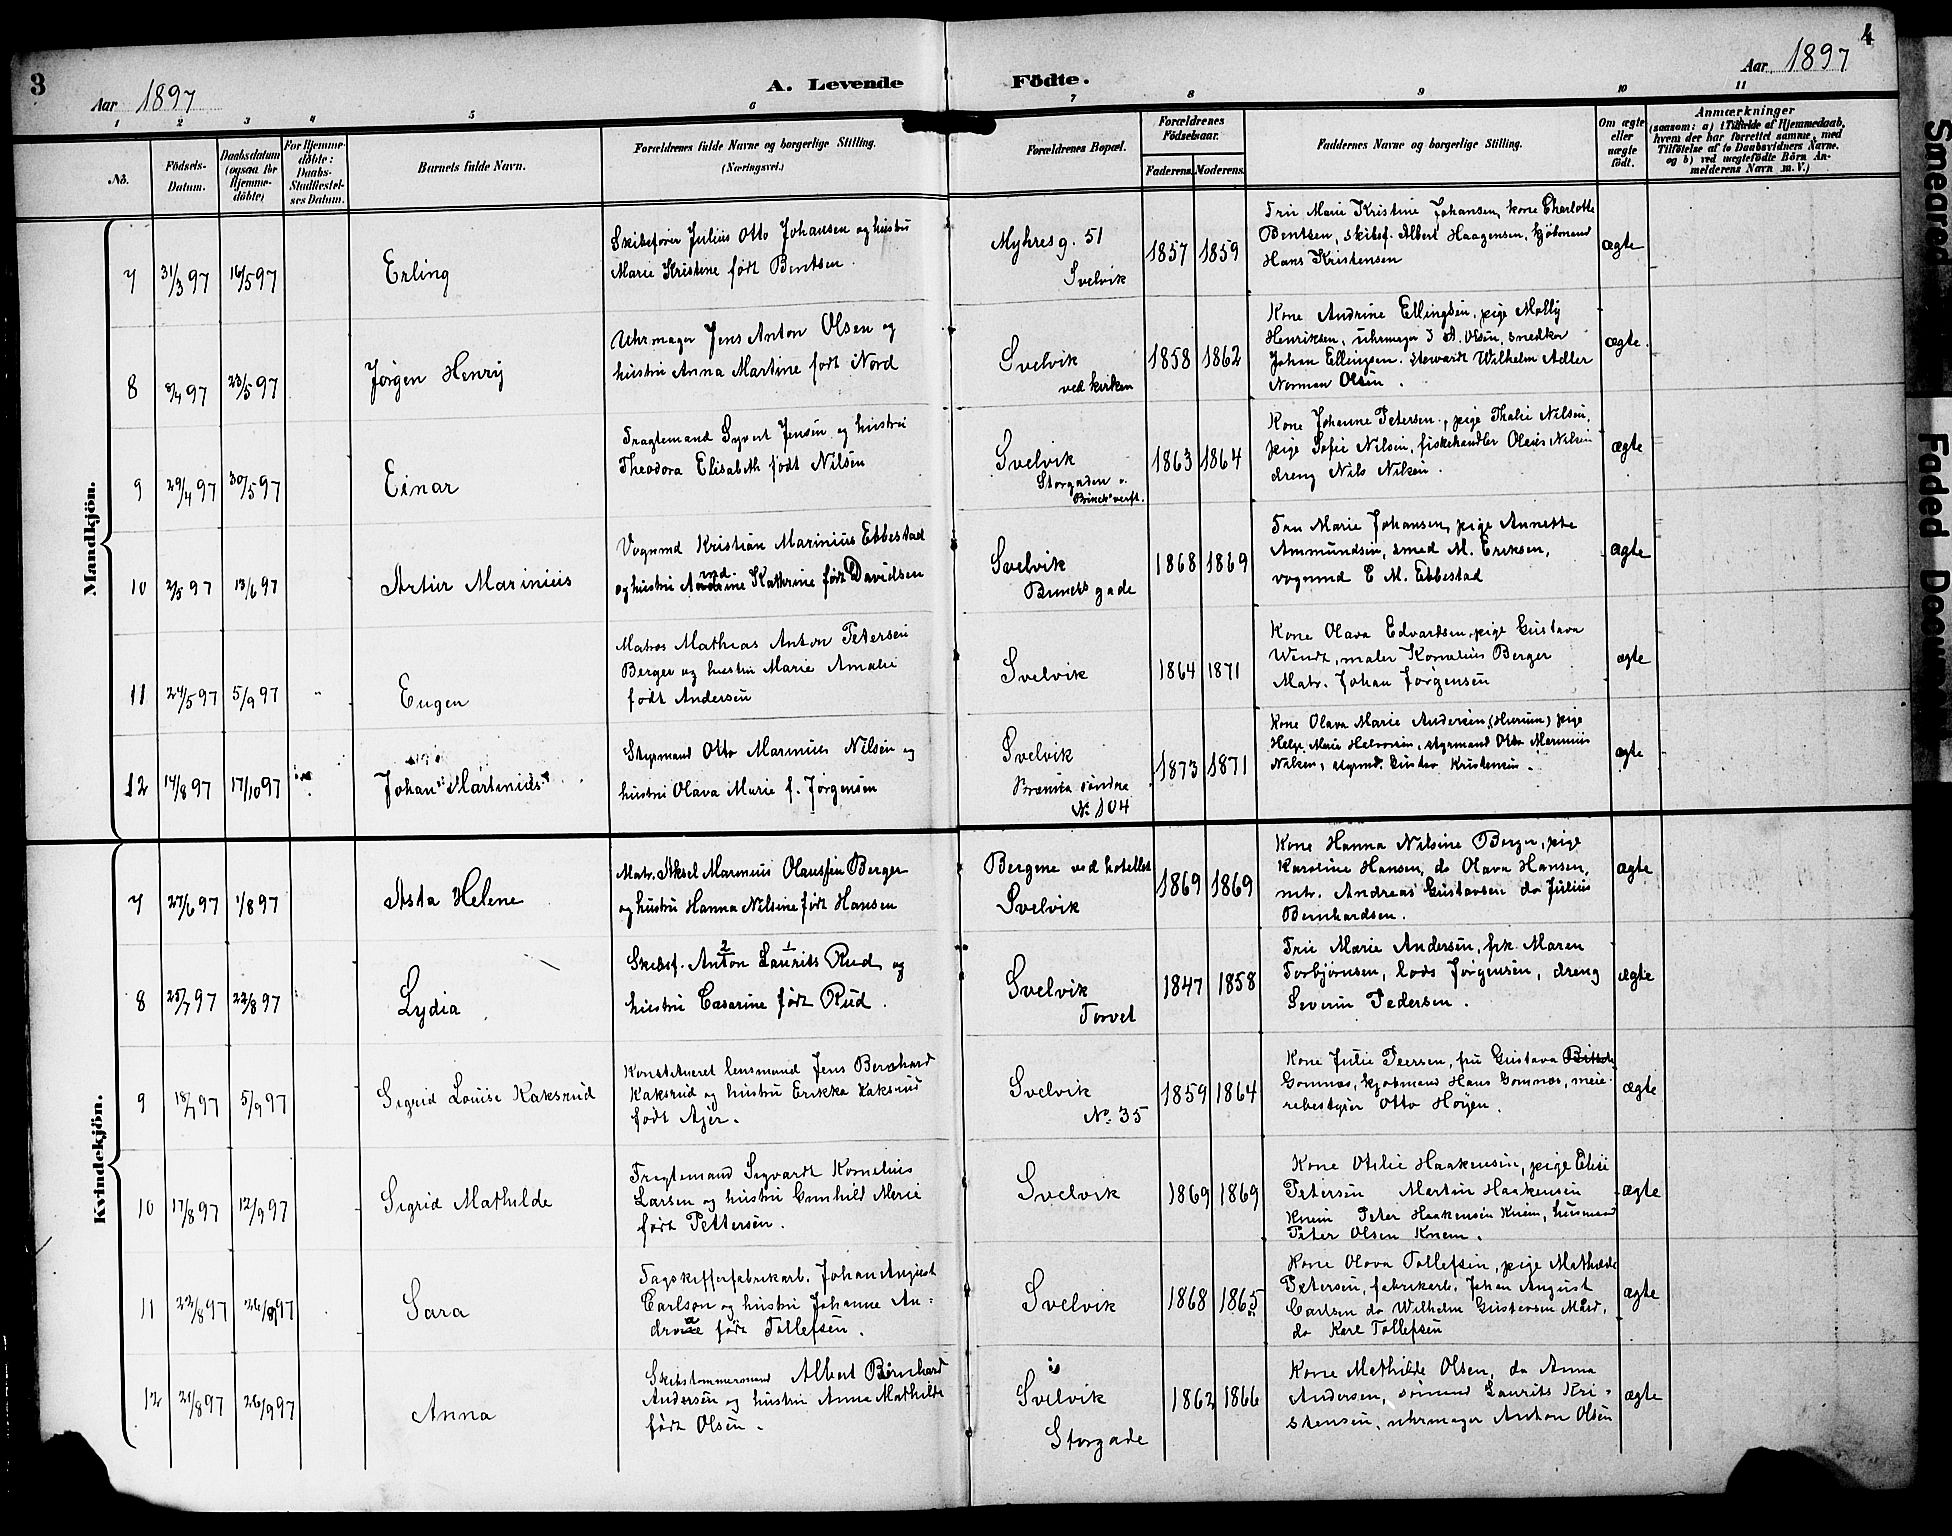 3
Aar 1897
A. Levende
Födte.
Aar 1897
4
1 2 3 4 5 6 7 8 9 10 11
No.
Födsels-Datum.
Daabsdatum (ogsaa for Hjemme-døbte)
For Hjemme-döbte: Daabs-Stadfæstel-ses Datum.
Barnets fulde Navn.
Forældrenes fulde Navne og borgerlige Stilling.
(Næringsvei.)
Forældrenes Bopæl.
Forældrenes Födselsaar.
Faderens. Moderens.
Faddernes Navne og borgerlige Stilling.
Om ægte eller uægte födt.
Anmærkninger
(saasom: a) i Tilfælde af Hjemmedaab,
hvem der har forrettet samme, med
Tilföielse af to Daabsvidners Navne,
og b) ved uægtefödte Börn An-
melderens Navn m. V.)
Mandkjön.
7 31/3 97 16/5 97 Erling
Skibsfører Julius Otto Johansen og hustru
Marie Kristine født Bentsen.
Myhresg. 51
Svelvik
1857 1859
Fru Marie Kristine Johansen, kone Charlotte
Bentsen, skibsf. Albert Haagensen, kjøbmand
Hans Kristensen
ægte
8 8/4 97 23/5 97 Jørgen Henry
Uhrmager Jens Anton Olsen og
hustru Anna Martine født Nord
Svelvik
ved kirken
1858 1862
Kone Andrine Ellingsen, pige Molly
Henriksen, uhrmager J. A. Olsen, snedker
Johan Ellingsen. Steward Wilhelm Adler
Norman Olsen.
ægte.
9 29/4 97 30/5 97 Einar
Fragtemand Syvert Jensen og hustru
Theodora Elisabeth født Nilsen
Svelvik
Storgaden v.
Brinchs verft.
1863 1864
Kone Johanne Petersen, pige Thalie Nilsen,
pige Sofie Nilsen, fiskehandler Oleus Nilsen
dreng Nils Nilsen.
ægte
10 2/5 97 13/6 97 Artur Marinius
Vognmd Kristian Marinius Ebbestad
og hustru Andrine Kathrine født Davidsen
Svelvik
gade
1868 1869
Fru Marie Johansen, pige Annette
Ammundsen, smed M. Eriksen,
vognmd E M. Ebbestad
ægte
11 24/5 97 5/9 97 Eugen
Matros Mathias Anton Petersen
Berger og hustru Marie Amalie
født Andersen
Svelvik
1864 1871
Kone Olava Edvardsen, pige Gustava
Wendt, maler Kornelius Berger
Matr. Johan Jørgensen
ægte
12 14/8 97 17/10 97 Johan Martinius
Styrmand Otto Marinius Nilsen og
hustru Olava Marie f. Jørgensen
Svelvik
søndre
No 104
1873 1871
Kone Olava Marie Andersen (Hurum) pige
Helga Marie Halvorsen, styrmand Otto Marinius
Nilsen, styrmd. Gustav Kristensen.
ægte
Kvindekjön.
7 27/6 97 1/8 97 Asta Helene
Matr. Aksel Marinius Olaussen Berger
og hustru Hanna Nilsine født Hansen
Bergene ved hotellet
Svelvik
1869 1869
Kone Hanna Nilsine Berger, pige
Karoline Hansen, do Olava Hansen,
mtr. Andreas Gustavsen do Julius
Bernhardsen.
ægte
8 25/7 97 22/8 97 Lydia
2 1
Skibsf. Anton Laurits Rud og
hustru Casarine født Rud.
Svelvik
Torvet
1847 1858
Fru Marie Andersen, frk. Maren
Torbjørnsen, lods Jørgensen, dreng
Severin Pedersen.
ægte
9 18/7 97 5/9 97 Sigrid Louise Kaksrud
Konstitueret lensmand Jens Bernhard
Kaksrud og hustru Erikka Kaksrud
født Ajer.
Svelvik
No. 35
1859 1864
Kone Julie Peersen, fru Gustava
Gomnæs, kjøbmand Hans Gomnæs, meie-
ribestyrer Otto Høyen.
ægte
10 17/8 97 12/9 97 Sigrid Mathilde
Fragtemand Sigvardt Kornelius
Larsen og hustru Gunhild Marie
født Pettersen.
Svelvik
1869 1869
Kone Otilie Haakensen, pige Elise
Petersen Martin Haakensen
Knem Peter Haakensen Knem, husmand
Peter Olsen Knem.
ægte
11 22/8 97 26/9 97 Sara
Tagskifferfabrikarb. Johan August
Carlson og hustru Johanne An-
drea født Tollefsen.
Svelvik
1868 1865
Kone Olava Tollefsen, pige Mathilde
Petersen, fabrikarb. Johan August
Carlsen do Wilhelm Gustavsen Maard,
do Karl Tollefsen
ægte
12 21/8 97 26/9 97 Anna
Skibstømmermand Albert Bernhard
Andersen og hustru Anna Mathilde
født Olsen.
Svelvik
Storgade
1862 1866
Kone Mathilde Olsen, do Anna
Andersen, sømand Laurits Kri-
stensen, uhrmager Anton Olsen
ægte
Smeared
Faded Docum